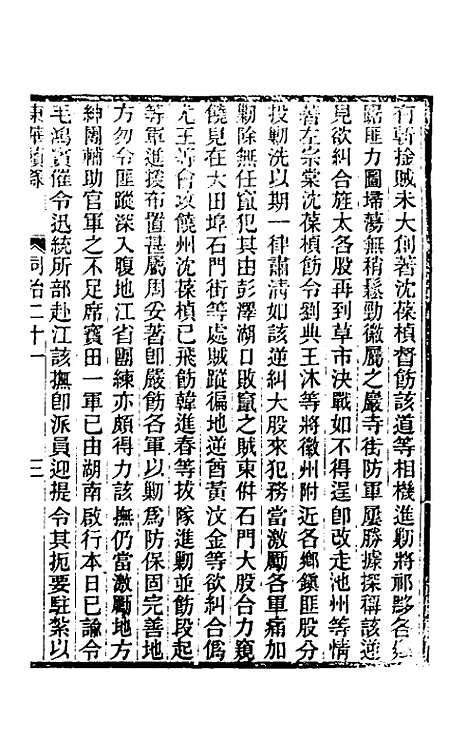 有斬捡賊未大創著沈葆楨督飭該道等相機進勦將祁黟各
踞匪力圖埽蕩無稍鬆勁徽屬之巖寺街防軍屢勝據探稱該逆
見欲糾合旌太各股再到草市決戰如不得逞卽改走池州等情
著左宗棠沈葆楨飭令劉典王沐等將徽州附近各鄉鎭匪股分
投勦洗以期一律肅淸如該逆糾大股來犯務當激勵各軍痛加
勦除無任竄犯其由彭澤湖口敗竄之賊東倂石門大股合力窺
饒見在大田埠石門街等處賊蹤徧地逆酋黃汶金等欲糾合僞
王等會攻饒州沈葆楨已飛飭韓進春等拔隊進勦並飭段起
等軍進援布置甚屬周安著卽嚴飭各軍以勦爲防保固完善地
方勿令匪蹤深入腹地江省團練亦頗得力該撫仍當激勵地方
紳團輔助官軍之不足席寶田一軍已由湖南啟行本日已諭令
毛鴻賓催令迅統所部赴江該撫卽派員迎提令其扼要駐紮以
東華續錄 同治二十一 三